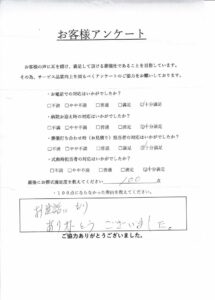 お客様アンケート
お客様の声に耳を傾け、満足して頂ける葬儀社であることを目指しています。
その為、サービス品質向上を図るべくアンケートのご協力をお願いしております。
・お電話での対応はいかがでしたか？
□不満 □やや不満 □普通 □満足 ☑十分満足
・病院お迎え時の対応はいかがでしたか？
□不満 □やや不満 □普通 □満足 ☑十分満足
・葬儀打ち合わせ時（お見積り）担当者の対応はいかがでしたか？
□不満 □やや不満 □普通 □満足 ☑十分満足
・式典時担当者の対応はいかがでしたか？
□不満 □やや不満 □普通 □満足 ☑十分満足
最後にお葬式満足度を教えてください 100 点
・100点にならなかった理由を教えてください。
お世話になり
ありがとうございました。
ご協力ありがとうございました。